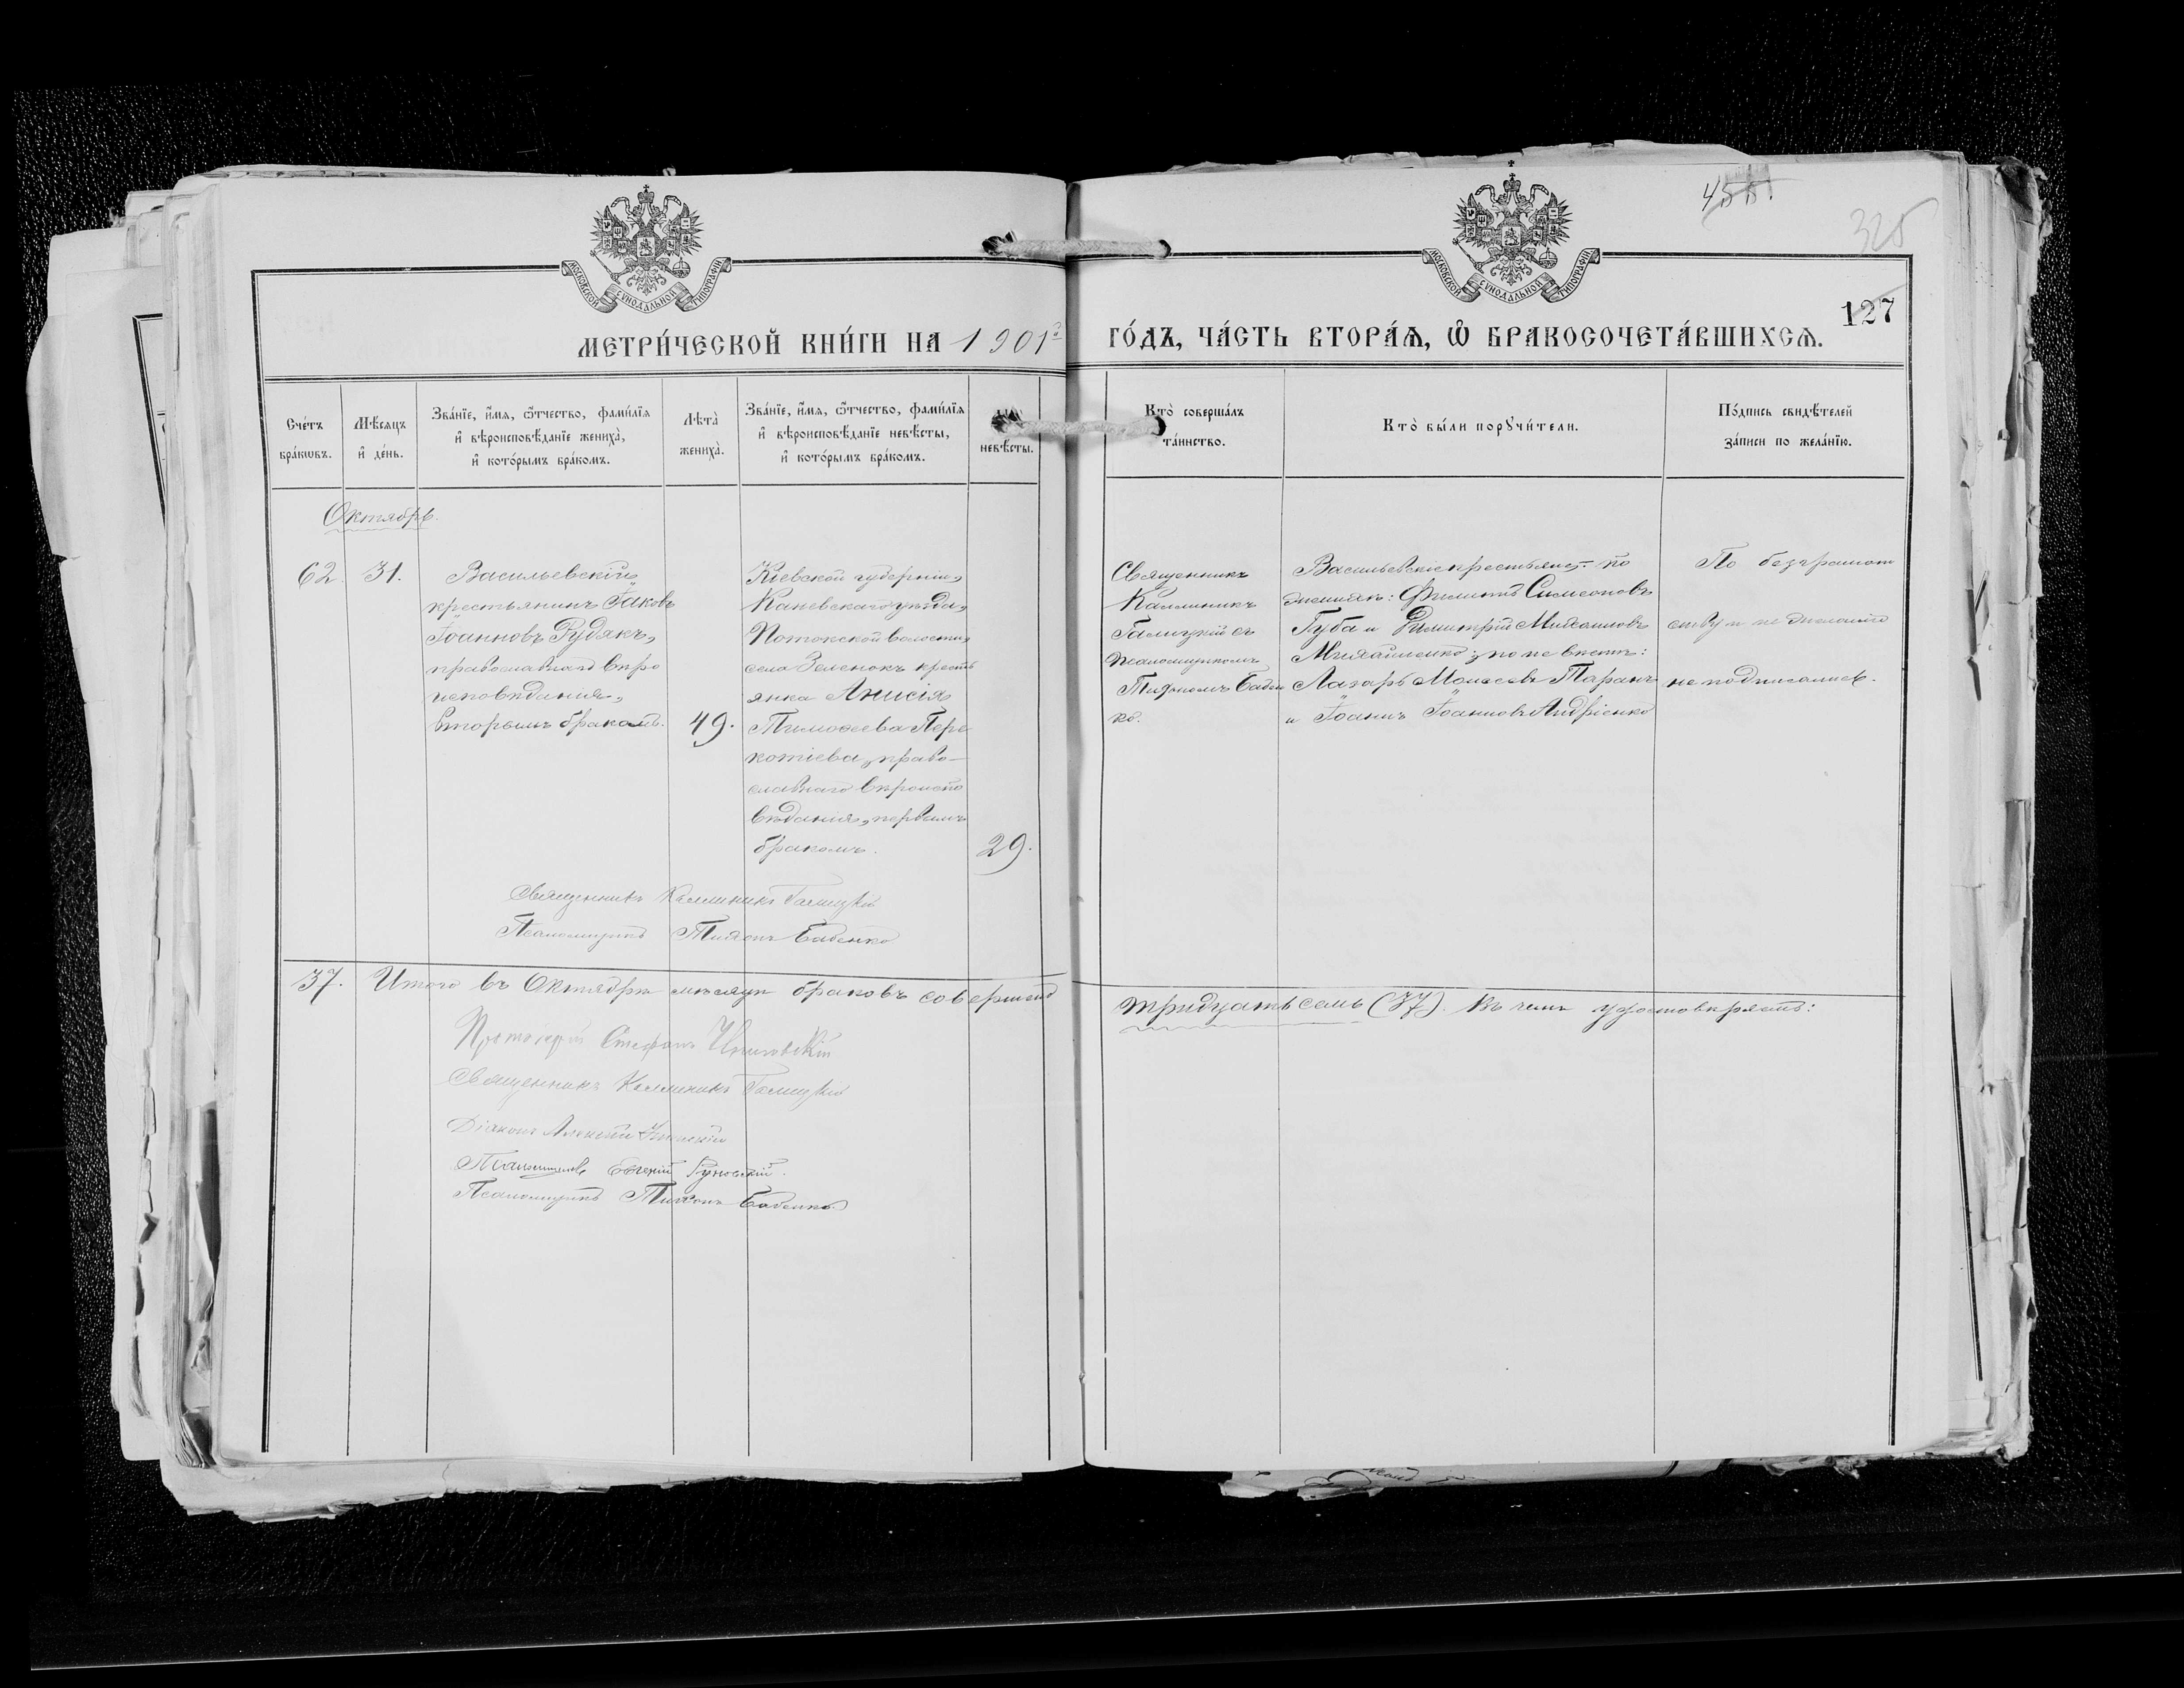 455.
325
127
МОСКОВСКОЙ СѴНОДАЛЬНОЙ ТИПОГРАФІИ
МОСКОВСКОЙ СѴНОДАЛЬНОЙ ТИПОГРАФІИ
МЕТРИ́ЧЕСКОЙ КНИ́ГИ НА 1901й ГО́ДЪ, ЧА́СТЬ ВТОРА́Ѧ, Ѡ҆ БРАКОСОЧЕТА́ВШИХСѦ.
Сче́тъ
бра́кѡвъ.
Мѣ́сѧцъ
и҆ де́нь.
Зва́нїе, и҆́мѧ, ѻ҆́тчество, фами́лїѧ
и҆ вѣроисповѣ́данїе жениха̀,
и҆ кото́рымъ бра́комъ.
Лѣта̀
жениха̀.
Зва́нїе, и҆́мѧ, ѻ҆́тчество, фами́лїѧ
и҆ вѣроисповѣ́данїе невѣ́сты,
и҆ кото́рымъ бра́комъ.
невѣ́сты.
Кто̀ соверша́лъ
та́инство.
Кто̀ бы́ли порꙋчи́тели.
По́дпись свидѣ́телей
за́писи по жела́нїю.
Октябрь.
62.
31.
Васильевскій
крестьянинъ Іаковъ
Іоанновъ Рудякъ,
православнаго вѣро
исповѣданія,
вторымъ бракомъ.
49.
Кіевской губерніи,
Каневскаго уѣзда,
Потокской волости,
села Зеленокъ кресть
янка Анисія
Тимоѳеева Пере
котіева, право-
славнаго вѣроиспо
вѣданія, первымъ
бракомъ.
29.
Священникъ
Каллиникъ
Галицкій съ
псаломщикомъ
Тихономъ Бабен
ко.
Васильевскіе крестьяне, - по
женихѣ: Филиппъ Симеоновъ
Губа и Димитрій Михаиловъ
Михайленко; по невѣстѣ:
Лазарь Моисеевъ Таранъ
и Іоаннъ Іоанновъ Андріенко
По безграмот
ству и не желанію
не подписались.
Священникъ Каллиникъ Галицкій
Псаломщикъ Тихонъ Бабенко
37. Итого въ Октябрѣ мѣсяцѣ браковъ совершено тридцать семь (37). Въ чемъ удостовѣряютъ:
Протоіерей Стефанъ
Священникъ Каллиникъ Галицкій
Діаконъ Алексій
Псаломщикъ Евгеній Руновскій.
Псаломщикъ Тихонъ Бабенко